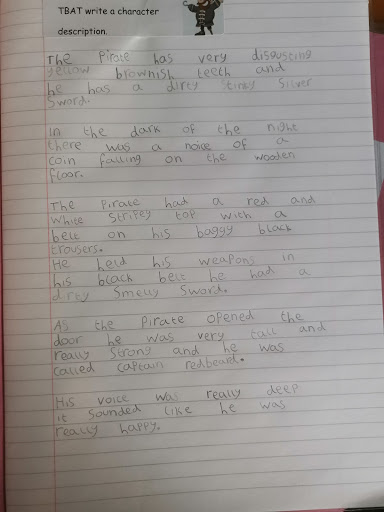 TBAT write a character
description.
The Pirate has very disgusting
yellow brownish teeth and
he has a dirty stincy Silver
Sword.
In the dark of the night
there was a noice of a
coin falling on the wooden
floor.
The Pirate had a red and
white stripey top with a
belt on his baggy black
trousers.
He held his weapons in
his black belt he had a
dirty smelly Sword.
As the Pirate opened the
door he was very tall and
really strong and he was
called captain redbeard.
His voice was really deep
it sounded like he was
really happy.